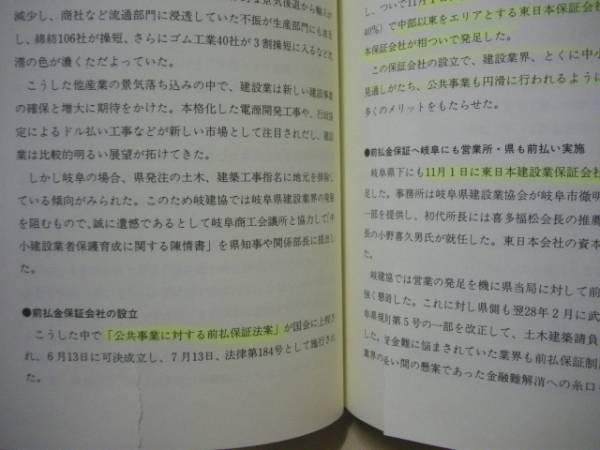 減少し、商社など流通部門に浸透していた不振が生産部門にも
し、綿紡106社が操短、さらにゴム工業40社が3割操短に入るなど
滞の色が濃くただよっていた。
こうした他産業の景気落ち込みの中で、建設業は新しい建設
の確保と増大に期待をかけた。本格化した電源開発工事や、行政
定によるドル払い工事などが新しい市場として注目されだし、建設
業は比較的明るい展望が拓けてきた。
しかし岐阜の場合、県発注の土木、建築工事指名に地元を排除し
ている傾向がみられた。このため岐建協では岐阜県建設業界の発展
を阻むもので、誠に遺憾であるとして岐阜商工会議所と協力して「中
小建設業者保護育成に関する陳情書」を県知事や関係部長に提出し
た。
●前払金保証会社の設立
こうした中で「公共事業に対する前払保証法案」が国会に上程さ
れ、6月13日に可決成立し、7月13日、法律第184号として施行され
た。
し、ついで11月1
40%)で中部以東をエリアとする東日本保証会
本保証会社が相ついで発足した。
この保証会社の設立で、建設業界、とくに中小
見通しがたち、公共事業も円滑に行われるように
多くのメリットをもたらせた。
●前払金保証へ岐阜にも営業所・県も前払い実施
岐阜県下にも11月1日に東日本建設業保証会社
足した。事務所は岐阜県建設業協会が岐阜市徹明
一部を提供し、初代所長には喜多福松会長の推薦
長の小野喜久男氏が就任した。東日本会社の資本
岐建協では営業の発足を機に県当局に対して前
強く懇請した。これに対し県側も翌28年2月に武
阜県規則第5号の一部を改正して、土木建築請負
た。資金難に悩まされていた業界も前払保証制度
業界の長い間の懸案であった金融難解消への糸口